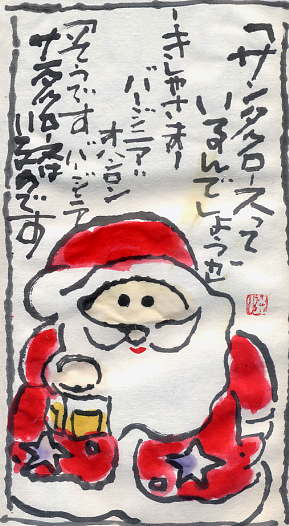 「サンタクロースって
いるんでしょうか」
バージニア
オハンロン
「そうです バージニア
サンタクロースは
いるのです